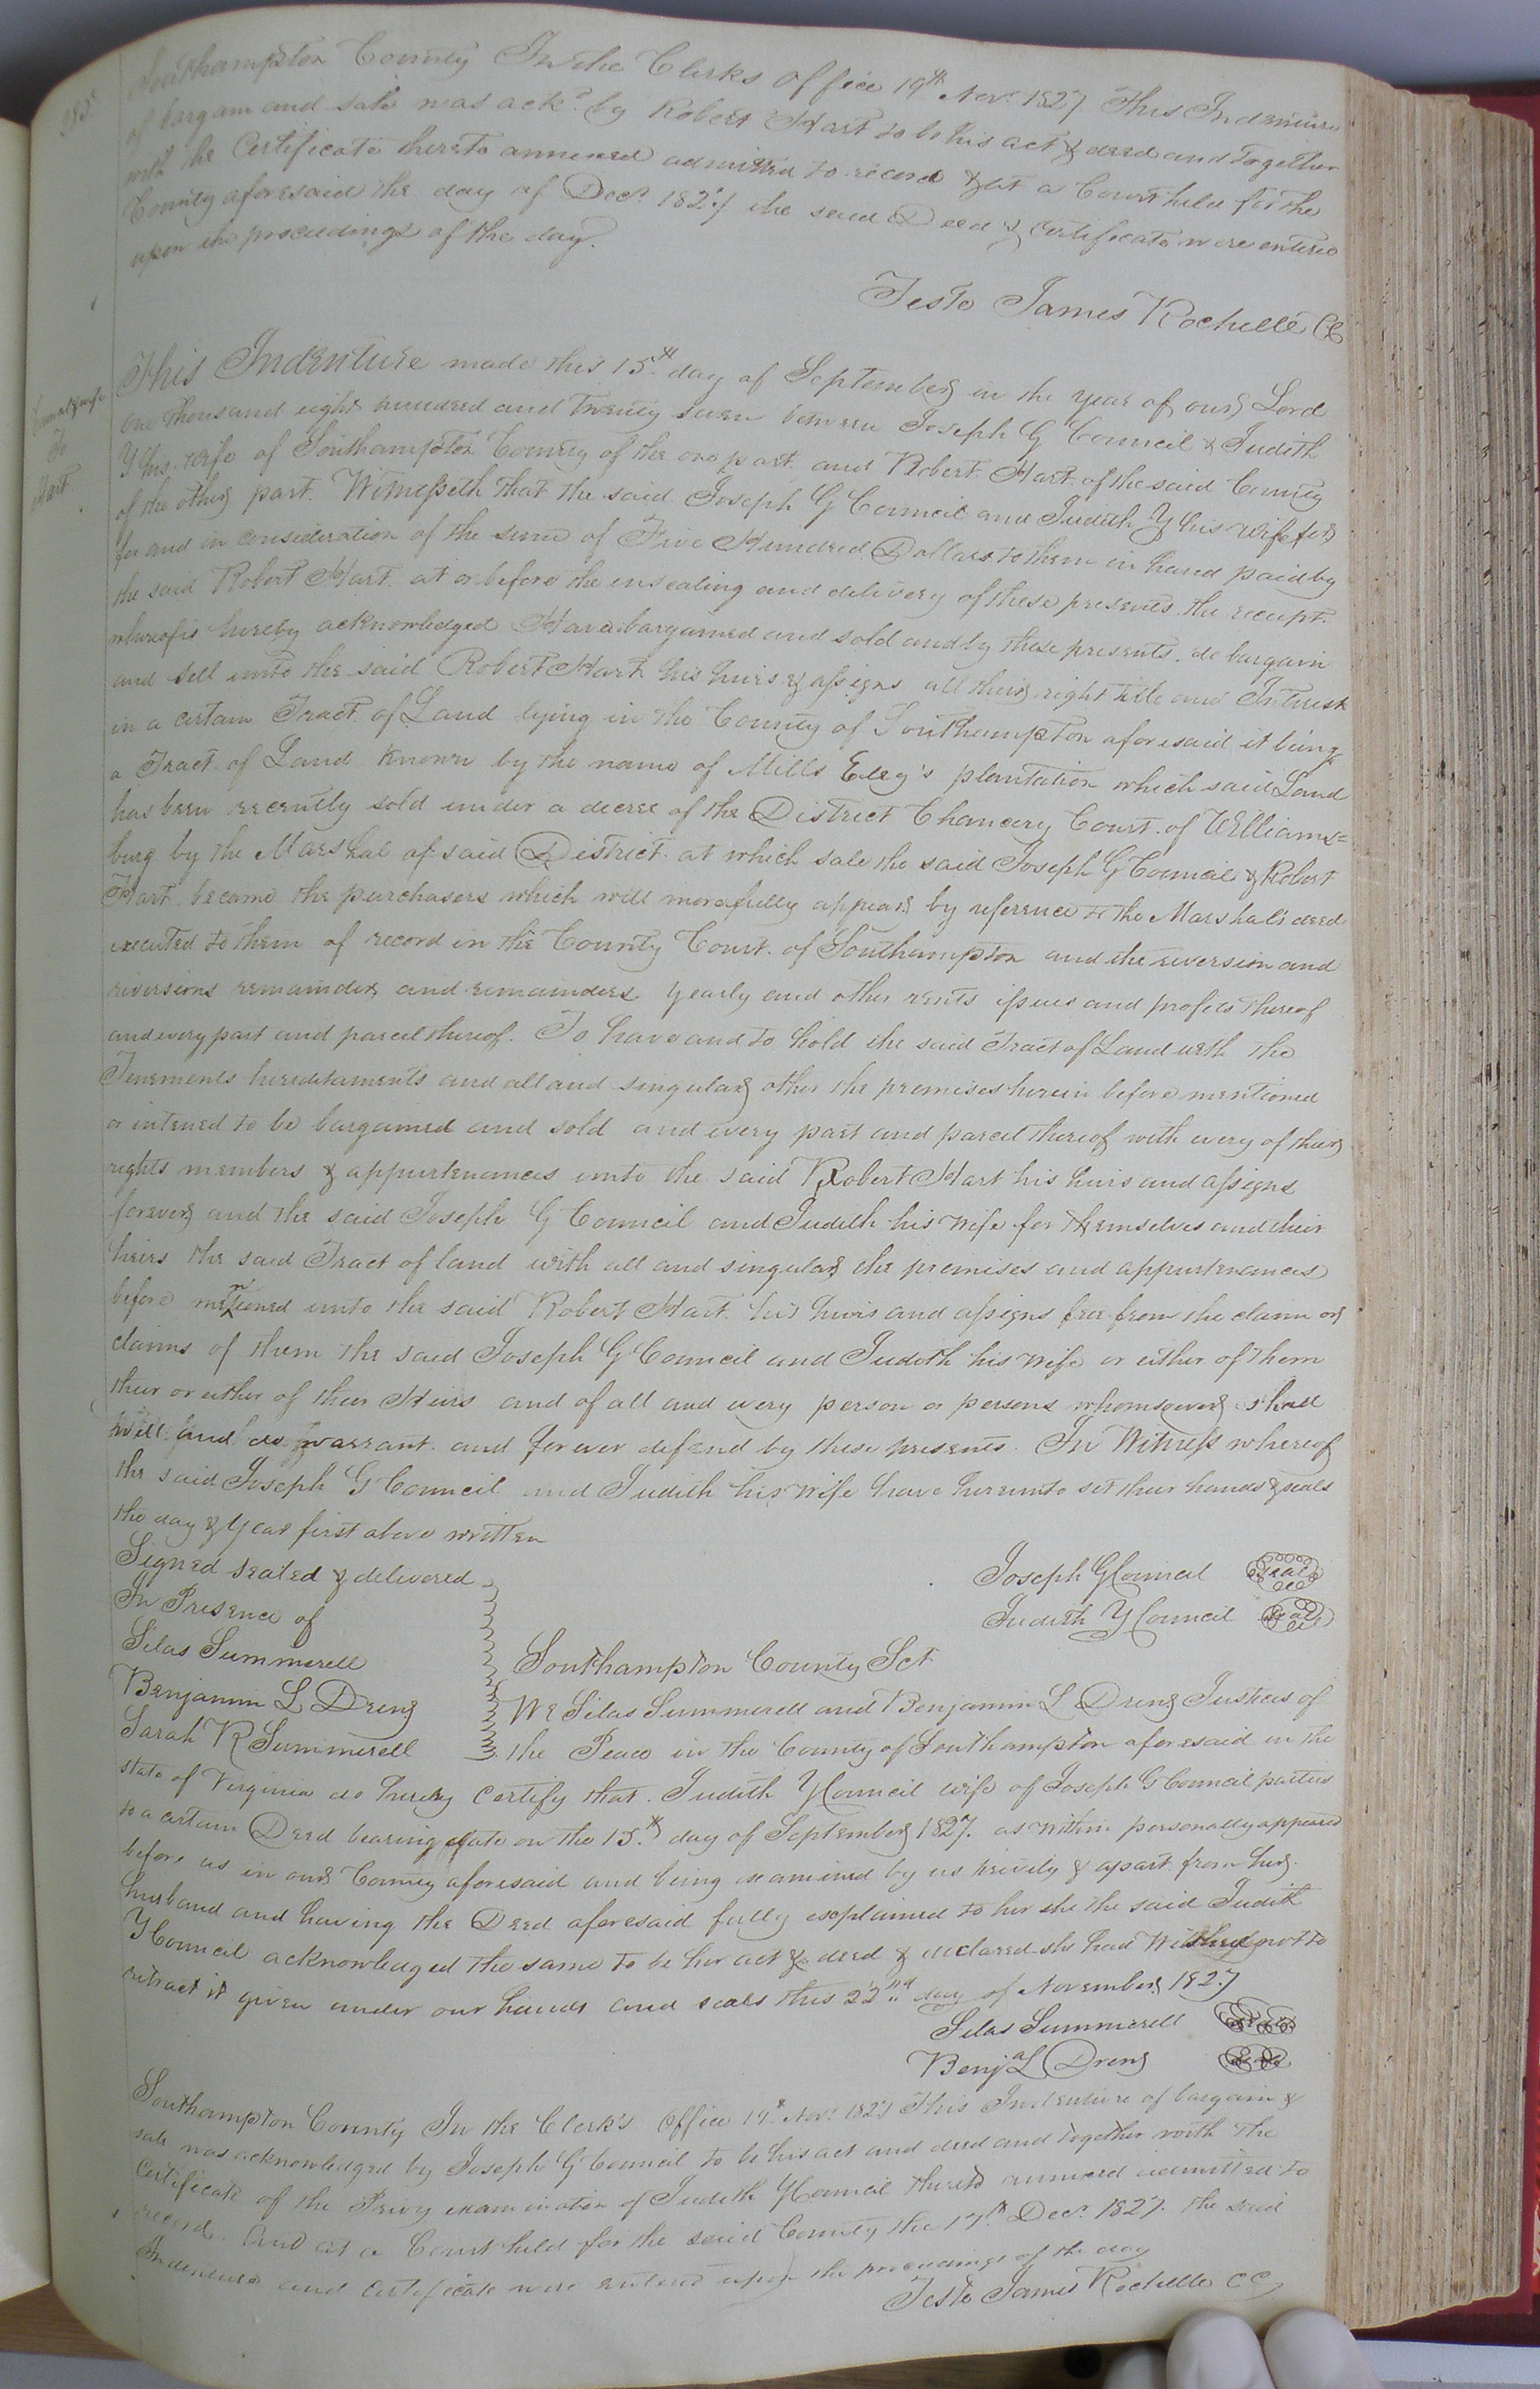 Southampton County In the Clerks Office 19th Novr 1827 This Indenture
of bargain and sale was ackd by Robert Hart to be his act & deed and together
with the Certificate thereto annexed admitted to record & at a Court held for the
County aforesaid the day of Decr 1827 the said Deed & Certificate were entered
upon the proceedings of the day.
Teste James Rochelle CC
Council & wife
To
Hart
This Indenture made this 15th day of September in the year of our Lord
one thousand eight hundred and twenty seven between Joseph G Council & Judith
Y his wife of Southampton County of the one part and Robert Hart of the said County
of the other part. Witnesseth that the said Joseph G Council and Judith Y his wife for
for and in consideration of the sum of Five Hundred Dollars to them in hand paid by
the said Robert Hart at or before the ensealing and delivery of these presents the receipt
whereof is hereby acknowledged Have bargained and sold and by these presents do bargain
and sell unto the said Robert Hart his heirs & assigns all their right title and Interest
in a certain Tract of Land lying in the County of Southampton aforesaid it being
a Tract of Land known by the name of Mills Eley's plantation which said Land
has been recently sold under a decree of the District Chancery Court of Williams=
burg by the Marshal of said District at which sale the said Joseph G Council & Robert
Hart became the purchasers which will more fully appear by reference to the Marshals deed
executed to them of record in the County Court of Southampton and the reversion and
reversions remainder and remainders yearly and other rents issues and profits thereof
and every part and parcel thereof. To have and to hold the said Tract of Land with the
Tenements hereditaments and all and singular other the premises herein before mentioned
or intened to be bargained and sold and every part and parcel thereof with every of their
rights members & appurtenances unto the said Robert Hart his heirs and assigns
forever and the said Joseph G Council and Judith his wife for themselves and their
heirs the said Tract of land with all and singular the premises and appurtenances
before mentioned unto the said Robert Hart his heirs and assigns free from the claim or
claims of them the said Joseph G Council and Judith his wife or either of them
their or either of their Heirs and of all and every person or persons whomsoever shall
will and do warrant and forever defend by these presents. In Witness whereof
the said Joseph G Council and Judith his wife have hereunto set their hands & seals
the day & year first above written
Signed sealed & delivered
In Presence of
Silas Summerell
Benjamin L Drew
Sarah R Summerell
Joseph G Council Seal
Judith Y Council Seal
Southampton County Sct
We Silas Summerell and Benjamin L Drew Justices of
the Peace in the County of Southampton aforesaid in the
state of Virginia do hereby certify that Judith Y Council wife of Joseph G Council parties
to a certain Deed bearing date on the 15th day of September 1827. as within personally appeared
before us in our County aforesaid and being examined by us privily & apart from her
husband and having the Deed aforesaid fully explained to her she the said Judith
Y Council acknowledged the same to be her act & deed & declared she had wished not to
retract it given under our hands and seals this 22nd day of November 1827
Silas Summerell Seal
Benja L Drew Seal
Southampton County In the Clerk's Office Novr 1827 This Indenture of bargain &
sale was acknowledged by Joseph G Council to be his act and deed and together with the
Certificate of the Privy examination of Judith Y Council thereto annexed admitted to
record And at a Court held for the said County the 17th Decr 1827. the said
Indenture and Certificate were entered upon the proceedings of the day
Teste James Rochelle CC